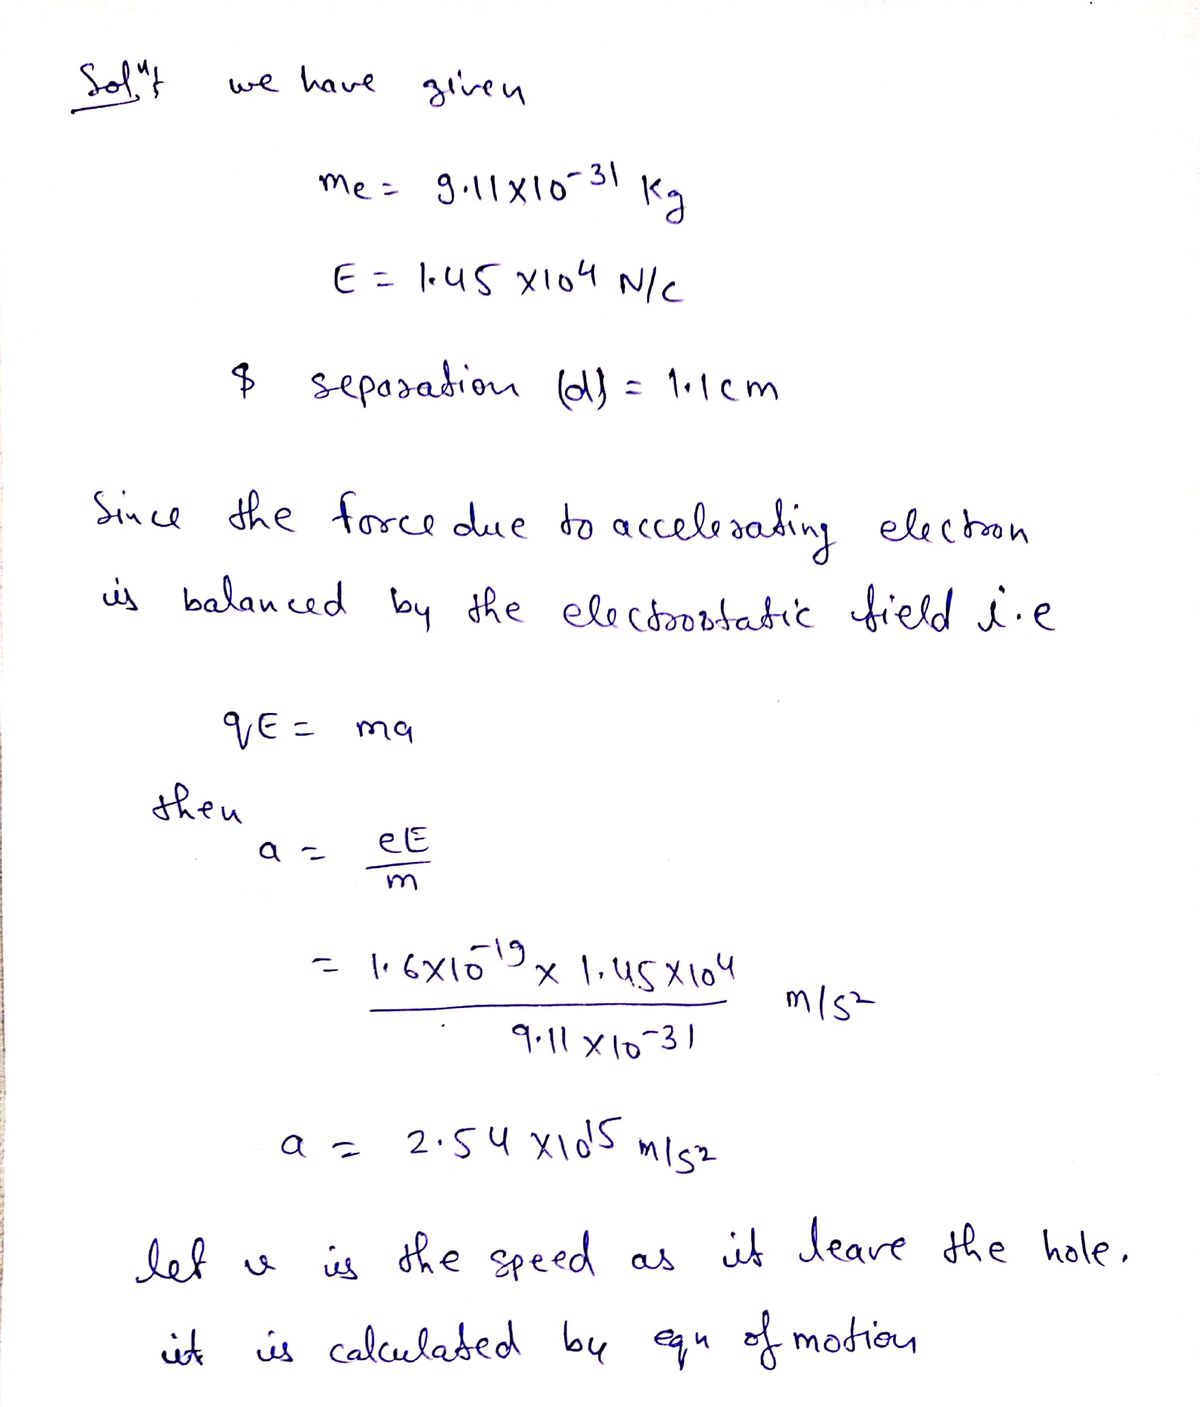 Solⁿ:
we have given
me = 9.11×10⁻³¹ Kg
E = 1.45 ×10⁴ N/C
$ separation (d) = 1.1cm
Since the force due to accelerating electron
is balanced by the electrostatic field i.e
qE = ma
then
a = eE/m
= 1.6×10⁻¹⁹ × 1.45×10⁴ / 9.11×10⁻³¹ m/s²
a = 2.54 ×10¹⁵ m/s²
let v is the speed as it leave the hole.
it is calculated by equ of motion